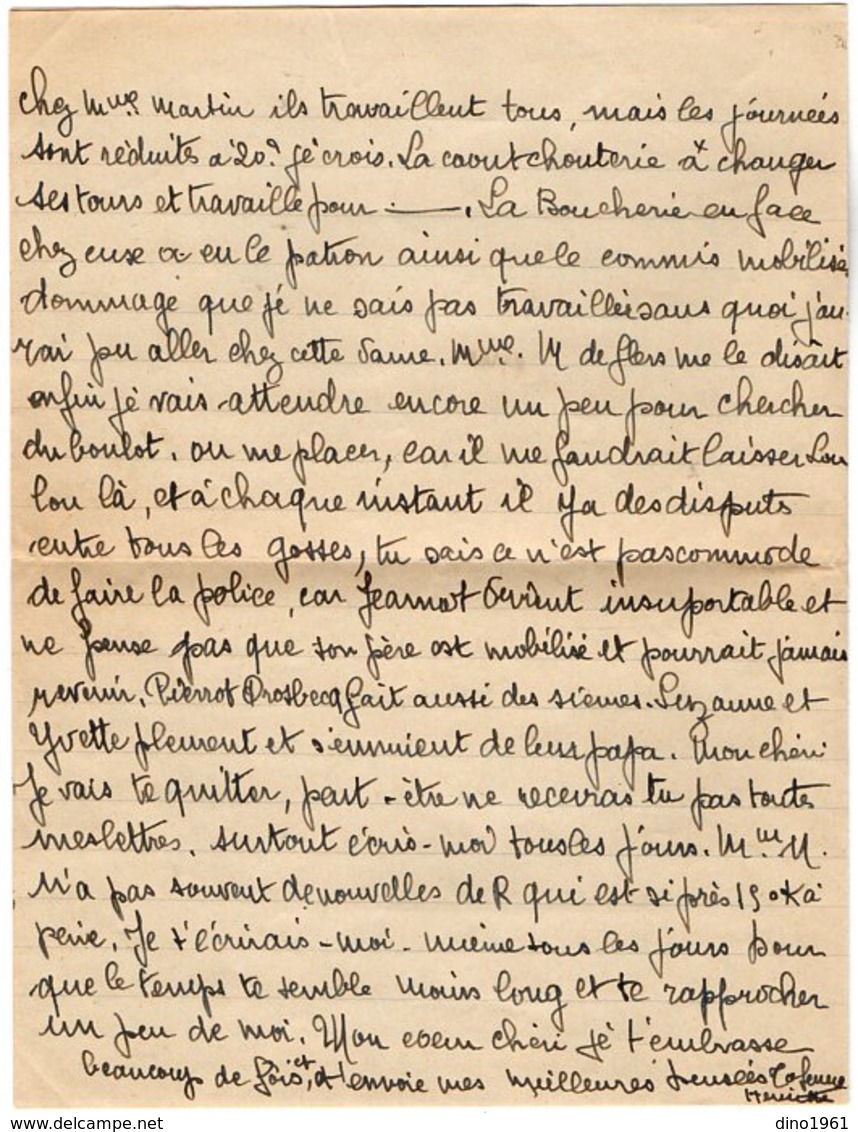 chez Mme. Martin ils travaillent tous, mais les journées
sont réduites à 20. je crois. La caoutchouterie à changer
ses tours et travaille pour ———. La Boucherie en face
chez eux a eu le patron ainsi que le commis mobilisé,
dommage que je ne sais pas travailler sans quoi j'au-
rai pu aller chez cette dame. Mme. M de flers me le disait
enfin je vais attendre encore un peu pour chercher
du boulot. ou me placer, car il me faudrait laisser Lou
lou là, et à chaque instant il y a des disputs
entre tous les gosses, tu sais ce n'est pas commode
de faire la police, car Jeannot devient insuportable et
ne pense pas que son père est mobilisé et pourrait jamais
revenir. Pierrot Drosbecq fait aussi des siennes. Suzanne et
Yvette pleurent et s'ennuient de leur papa. Mon chéri
Je vais te quitter, peut-être ne receviras tu pas toutes
mes lettres. surtout écris-moi tous les jours. Mme M.
n'a pas souvent de nouvelles de R qui est si près 150K à
peine. Je t'écrirais-moi-même tous les jours pour
que le temps te semble moins long et te rapprocher
un peu de moi. Mon coeur chéri je t'embrasse
beaucoup de fois, et t'envoie mes meilleures pensées Ta femme
Henriette
dino1961